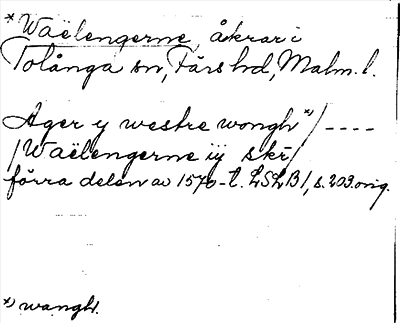 *Waëlengerne, åkrar i
Tolånga sn, Färs hd, Malm. l.
Ager y westre wongh *)/----
/Waëlengerne iij skr/
förra delen av 1570-t. LSLB1, s. 203 orig.
*) wangh.